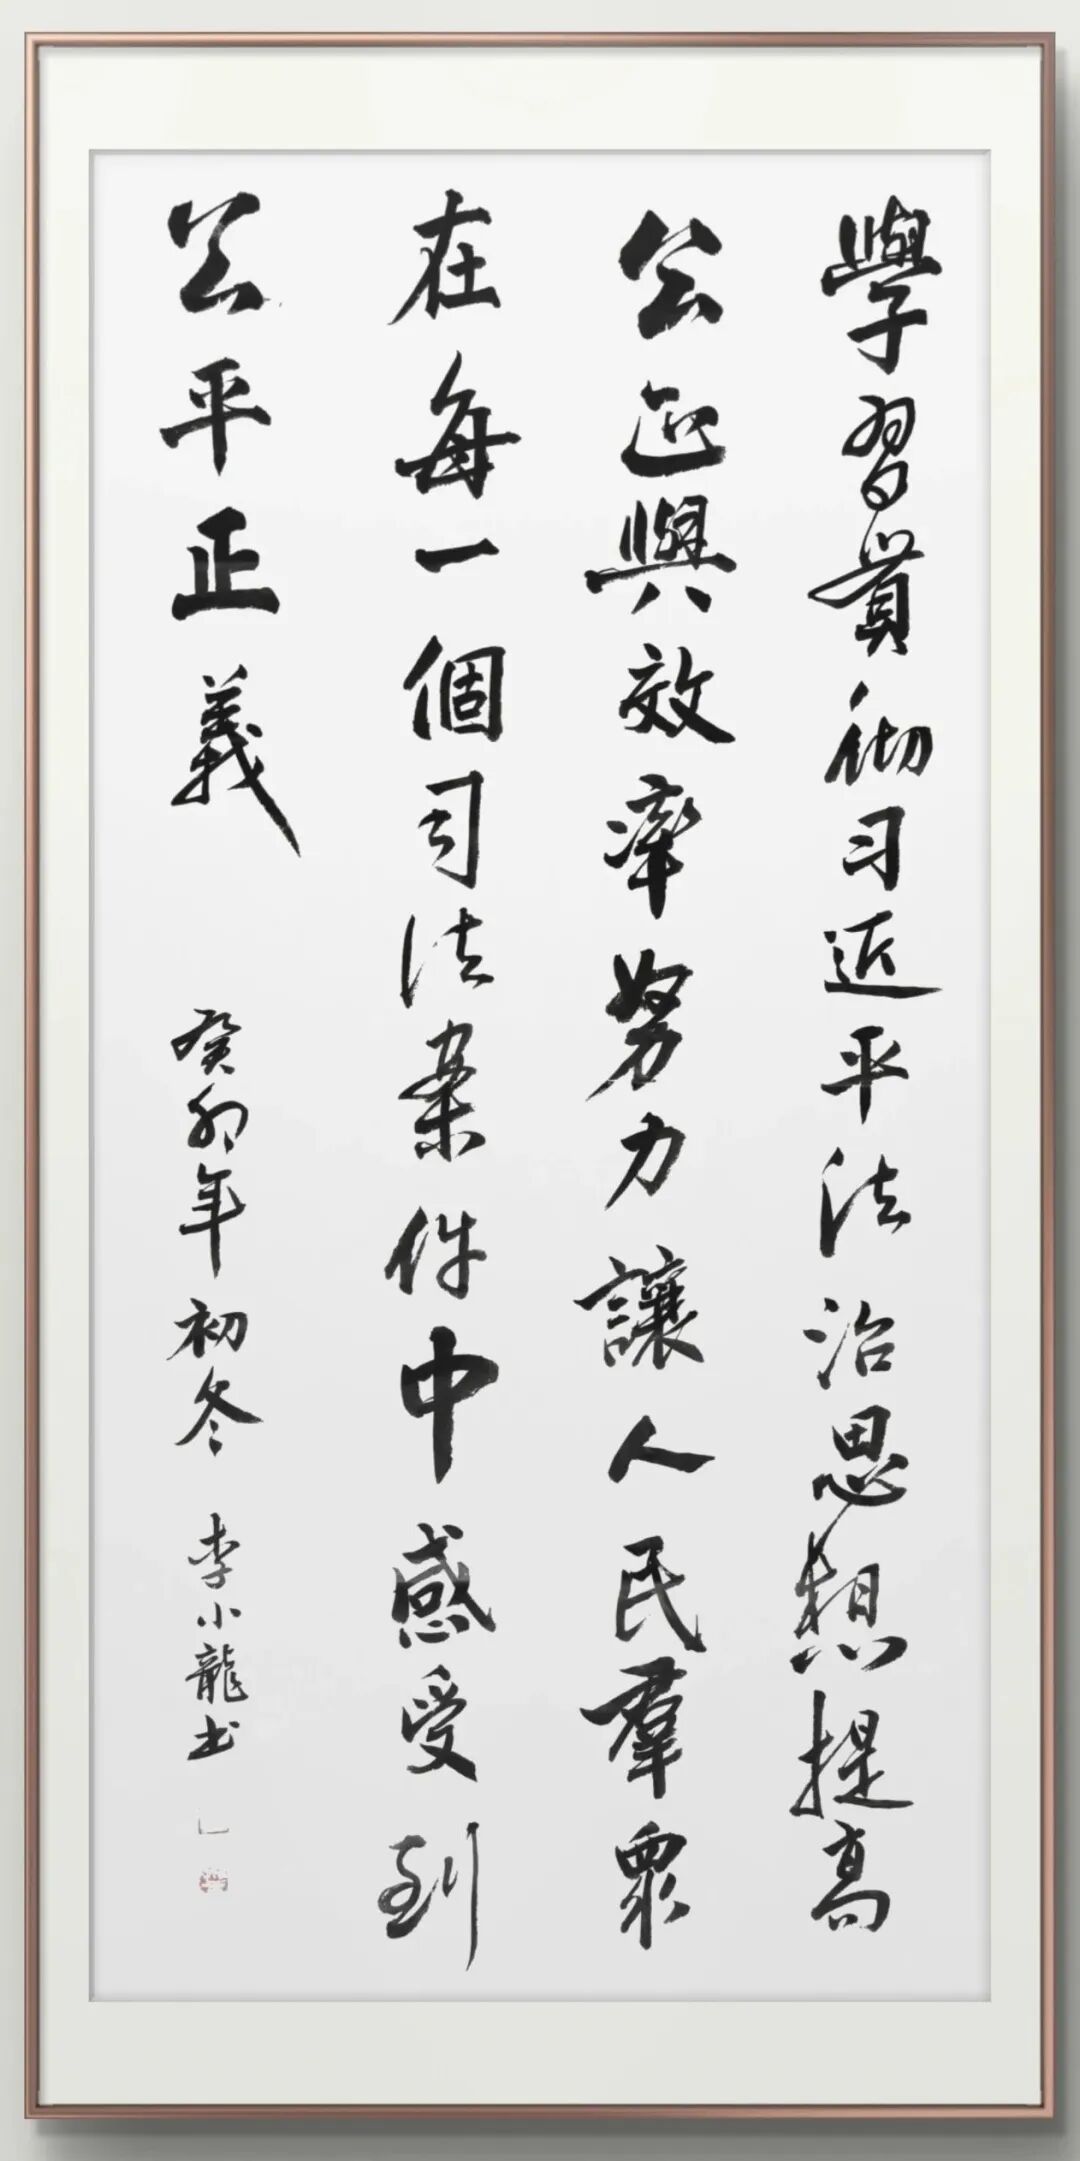 學習貫彻习近平法治思想提高
公正與效率努力讓人民羣眾
在每一個司法案件中感受到
公平正義
癸卯年初冬 李小龍书